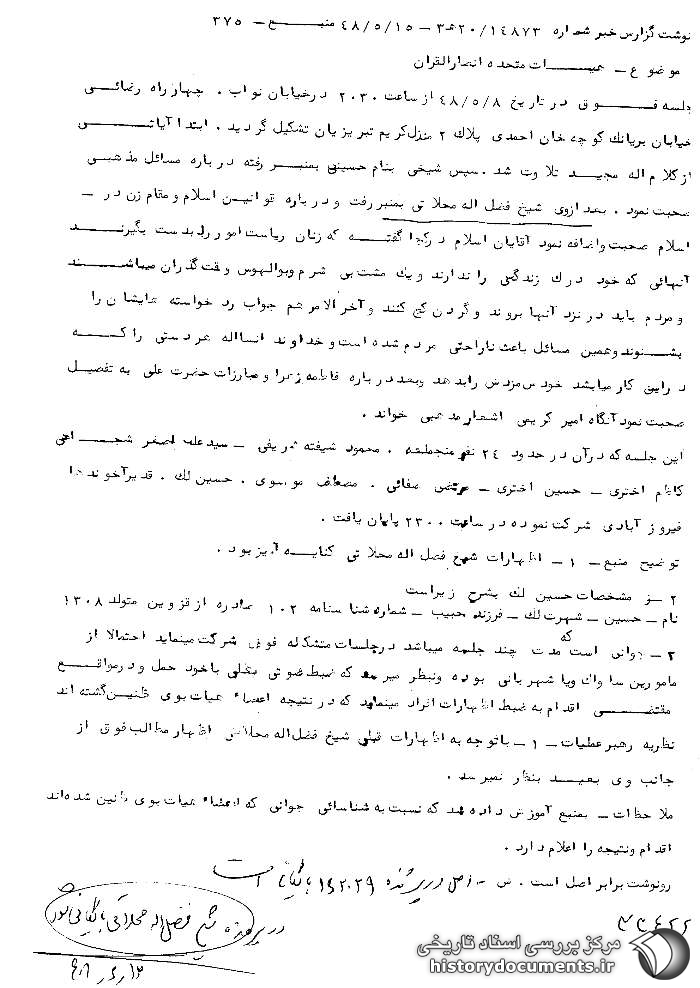 نوشت گزارس خبر شماره ۲۰/۱٤۸۷۳ ه۳ – ٤۸/٥/۱٥ منبع – ۳۷٥
موضوع – هیئات متحده انصارالقران
جلسه فوق در تاریخ ٤۸/٥/۸ از ساعت ۲۰۳۰ در خیابان نواب . چهارراه رضائی
خیابان بریانك کوچه خان احمدی پلاك ۲ منزل کریم تبریزیان تشکیل گردید . ابتدا آیاتی
از کلام اله مجید تلاوت شد . سپس شیخی بنام حسینی بمنبر رفته درباره مسائل مذهبی
صحبت نمود . بعد ازوی شیخ فضل اله محلاتی بمنبر رفت و درباره قوانین اسلام و مقام زن در –
اسلام صحبت واضافه نمود آقایان اسلام در کجا گفته که زنان ریاست امور را بدست بگیرند
آنهائی که خود درك زندگی را ندارند و یك مشت بی شرم وبوالهوس وقت گذران میباشند
و مردم باید در نزد آنها بروند و گردن کج کنند و آخر الامر هم جواب رد خواسته هایشان را
بشنوند وهمین مسائل باعث ناراحتی مردم شده است و خداوند انسااله هر دستی را که
در این کار میاشد خودس مزدش را بدهد وبعد درباره فاطمه زهرا و مبارزات حضرت علی به تفصیل
صحبت نمود آنگاه امیر کریمی اشعار مذهبی خواند .
این جلسه که در آن در حدود ۲٤ نفر منجمله . محمود شیفته شریفی – سید علی اصغر شجاعی
کاظم اختری – حسین اختری – مرتضی صفائی . مصطفی موسوی . حسین لك . قدیر آخوندها
فیروز آبادی شرکت نموده در ساعت ۲۳۰۰ پایان یافت .
توضیح منبع – ۱ – اظهارات شیخ فضل اله محلاتی کنایه آمیز بود .
۲ – مشخصات حسین لك بشرح زیراست
نام – حسین – شهرت لك – فرزند حبیب – شماره شناسنامه ۱۰۲ صادره از قزوین متولد ۱۳۰۸
۳ – جوانی است که مدت چند جلسه میباشد در جلسات متشکله فوق شرکت مینماید احتمالا از
مامورین ساواك ویا شهربانی بوده وبنظر میرسد که ضبط صوتی بغلی باخود حمل و در مواقع
مقتضی اقدام به ضبط اظهارات افراد مینماید که در نتیجه اعضاء هیات بوی ظنین گشته اند
نظریه رهبر عملیات – ۱ – باتوجه به اظهارات قبلی شیخ فضل اله محلاتی اظهار مطالب فوق از
جانب وی بعید بنظر نمیرسد .
ملاحظات – بمنبع آموزش داده شد که نسبت به شناسائی جوانی که اعضاء هیات بوی ظنین شده اند
اقدام ونتیجه را اعلام دارد .
رونوشت برابر اصل است . س – اصل در پرونده ۱۵۲۰۲۹ بایگانی است
در پرونده شیخ فضل اله محلاتی بایگانی شود
۳۳٤۲۲
مرکز بررسی اسناد تاریخی
historydocuments.ir